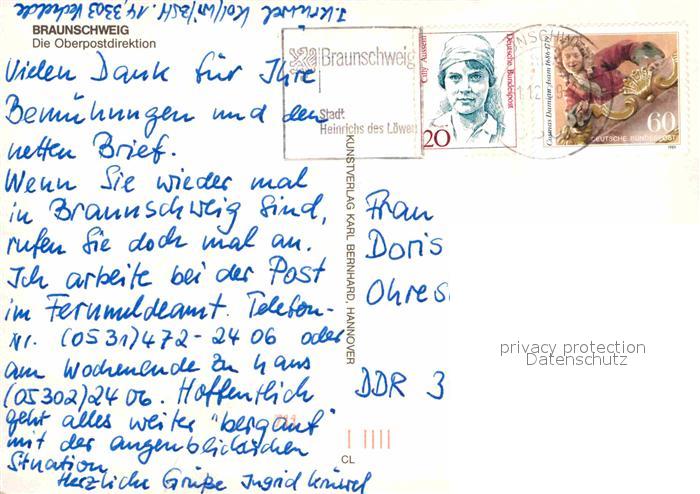 BRAUNSCHWEIG
Die Oberpostdirektion
Vielen Dank für Ihre
Bemühungen und den
netten Brief.
Wenn Sie wieder mal
in Braunschweig sind,
rufen Sie doch mal an.
Ich arbeite bei der Post
im Fernmeldeamt. Telefon-
Nr. (0531) 472-2406 oder
am Wochenende zu Haus
(05302) 2406. Hoffentlich
geht alles weiter "bergauf"
mit der augenblicklichen
Situation
Herzliche Grüße Ingrid Krüwel
KUNSTVERLAG KARL BERNHARD, HANNOVER
CL
Braunschweig
Stadt
Heinrichs des Löwen
Cilly Aussem
Deutsche Bundespost
20
Cosmas Damian Asam 1686-1739
60
DEUTSCHE BUNDESPOST
Frau
Doris
DDR 3
privacy protection
Datenschutz